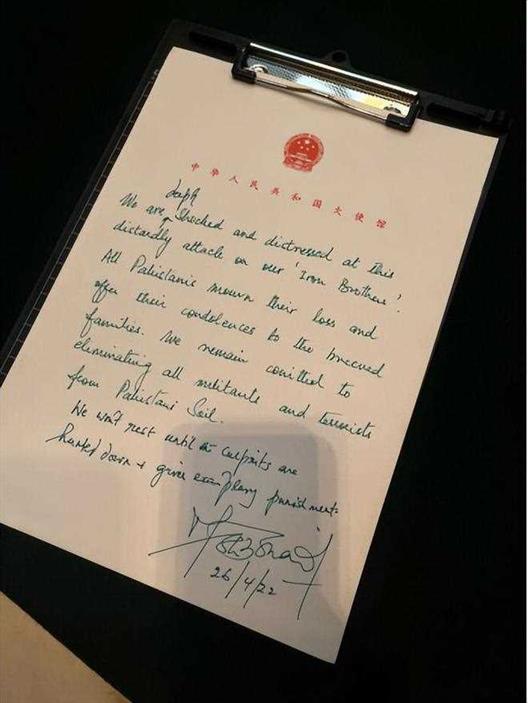 中华人民共和国大使馆
deeply
We are shocked and distressed at this
dastardly attack on our 'Iron Brothers'.
All Pakistanis mourn their loss and
offer their condolences to the bereaved
families. We remain comitted to
eliminating all militants and terrorists
from Pakistani Soil.
We won't rest until culprits are
hunted down + given exemplary punishment.
26/4/22